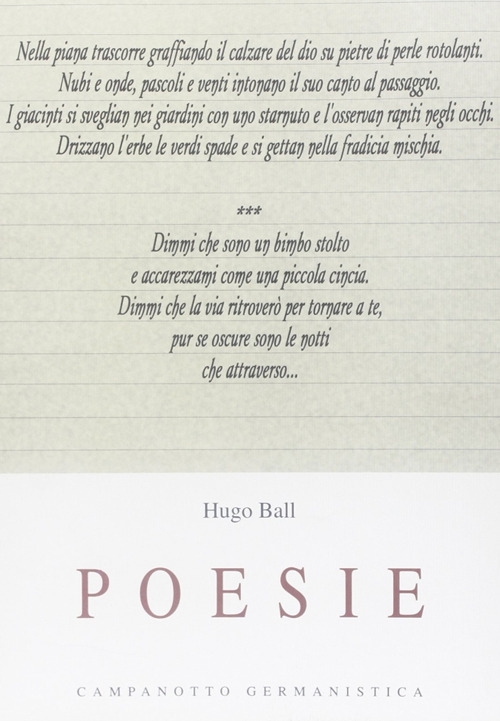 Nella piana trascorre graffiando il calzare del dio su pietre di perle rotolanti.
Nubi e onde, pascoli e venti intonano il suo canto al passaggio.
I giacinti si sveglian nei giardini con uno starnuto e l'osservan rapiti negli occhi.
Drizzano l'erbe le verdi spade e si gettan nella fradicia mischia.
***
Dimmi che sono un bimbo stolto
e accarezzami come una piccola cincia.
Dimmi che la via ritroverò per tornare a te,
pur se oscure sono le notti
che attraverso...
Hugo Ball
POESIE
CAMPANOTTO GERMANISTICA